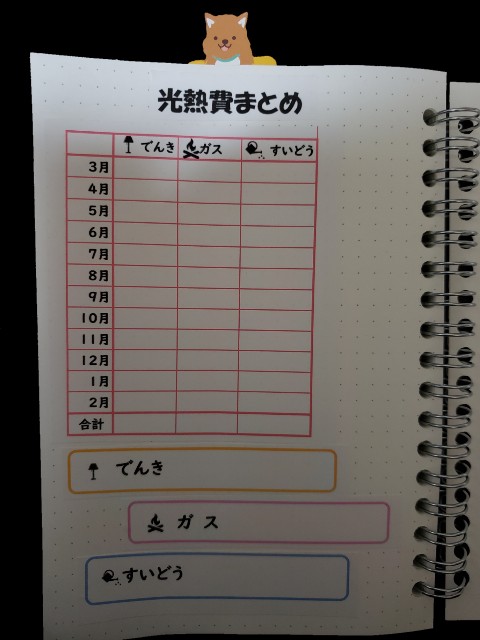 光熱費まとめ
でんき ガス すいどう
3月
4月
5月
6月
7月
8月
9月
10月
11月
12月
1月
2月
合計
でんき
ガス
すいどう